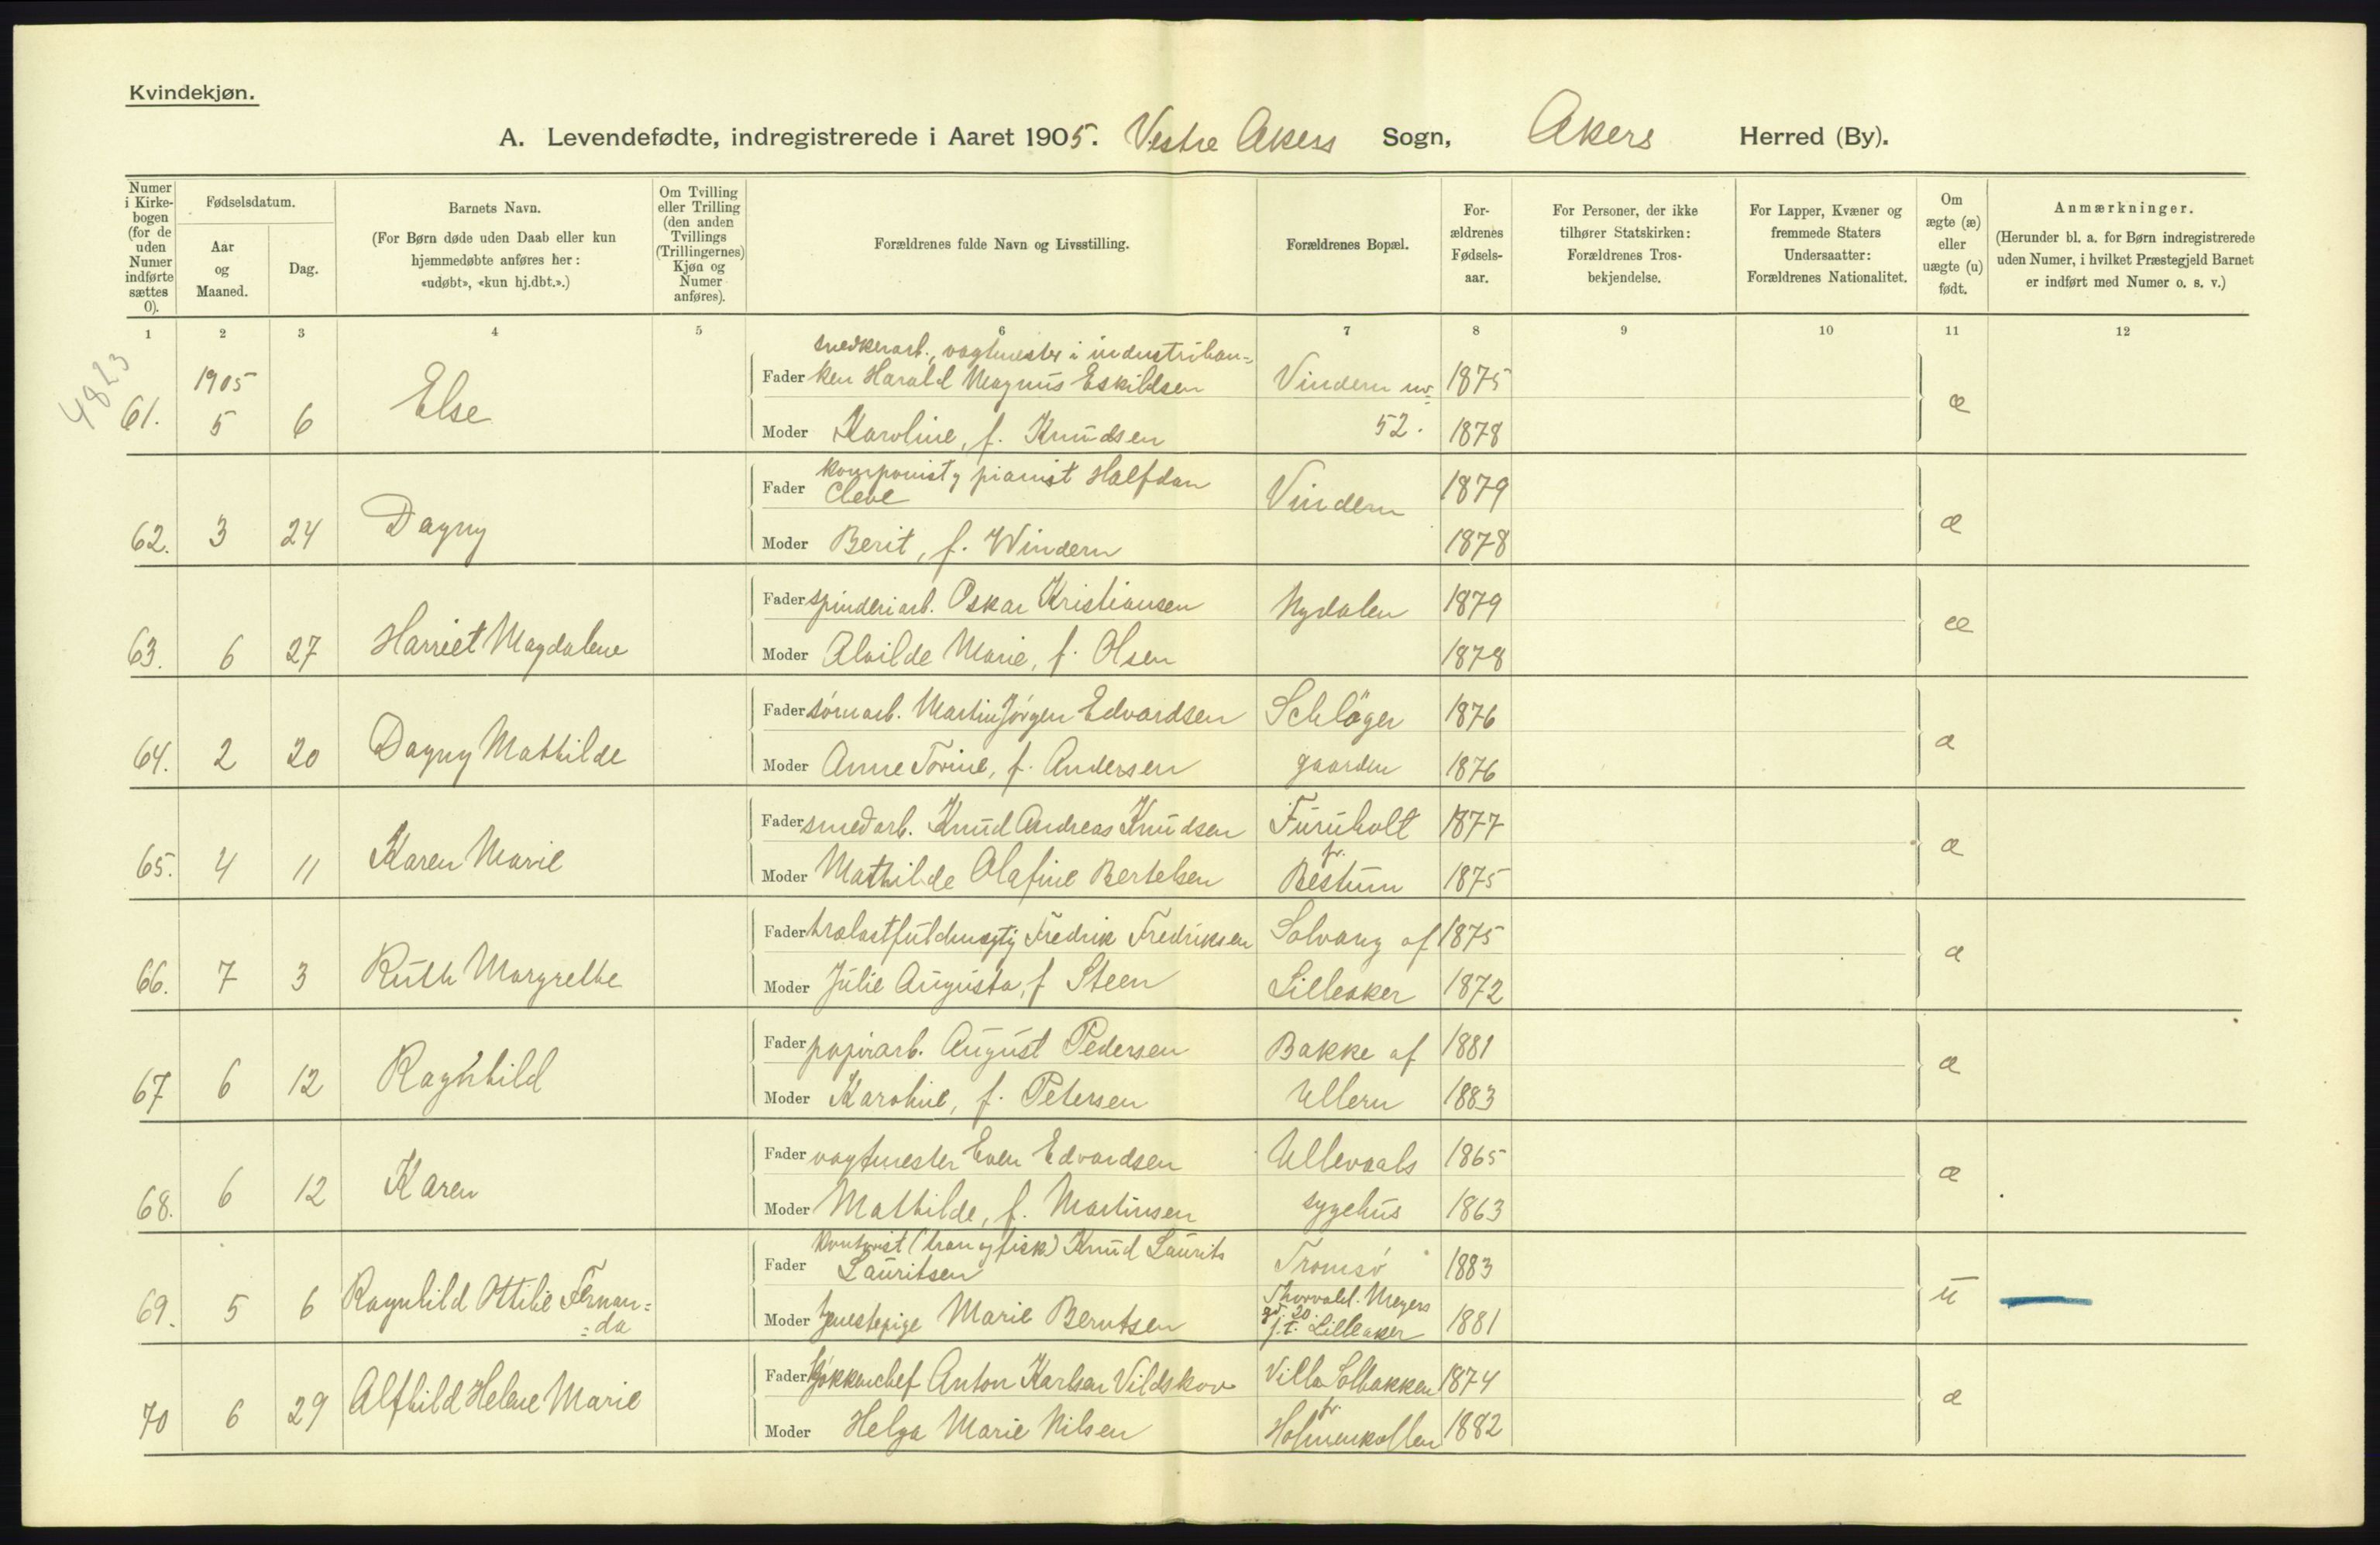 Kvindekjøn.
A. Levendefødte, indregistrerede i Aaret 1905. Vestre Akers Sogn, Akers Herred (By).
Numer i Kirkebogen (for de uden Numer indførte sættes 0).
Fødselsdatum.
Aar og Maaned.
Dag.
Barnets Navn.
(For Børn døde uden Daab eller kun hjemmedøbte anføres her: «udøbt», «kun hj.dbt.».)
Om Tvilling eller Trilling (den anden Tvillings (Trillingernes) Kjøn og Numer anføres).
Forældrenes fulde Navn og Livsstilling.
Forældrenes Bopæl.
Forældrenes Fødselsaar.
For Personer, der ikke tilhører Statskirken: Forældrenes Trosbekjendelse.
For Lapper, Kvæner og fremmede Staters Undersaatter: Forældrenes Nationalitet.
Om ægte (æ) eller uægte (u) født.
Anmærkninger.
(Herunder bl. a. for Børn indregistrerede uden Numer, i hvilket Præstegjeld Barnet er indført med Numer o. s. v.)
1 2 3 4 5 6 7 8 9 10 11 12
4823
snedkerarb., vagtmester i industriban=
1905 Fader ken Harald Magnus Eskildsen Vindern nr. 1875
61. 5 6 Else Moder Karoline, f. Knudsen 52. 1878 æ
Fader komponist, pianist Halfdan
Cleve Vindern 1879
62. 3 24 Dagny Moder Berit, f. Windern 1878 æ
Fader spinderiarb. Oskar Kristiansen Nydalen 1879
63. 6 27 Harriet Magdalene Moder Alvilde Marie, f. Olsen 1878 æ
Fader sömarb. Martin Jörgen Edvardsen Schläger 1876
64. 2 20 Dagny Mathilde Moder Anne Torine, f. Andersen gaarden 1876 æ
Fader smedarb. Knud Andreas Knudsen Furuholt 1877
65. 4 11 Karen Marie Moder Mathilde Olafine Bertelsen pr. Bestum 1875 æ
Fader Fredrik Fredriksen Solvang af 1875
66. 7 3 Ruth Margrethe Moder Julie Augusta, f Steen Lilleaker 1872 æ
Fader papirarb. August Pedersen Bakke af 1881
67 6 12 Ragnhild Moder Karoline, f. Petersen Ullern 1883 æ
Fader vagtmester Even Edvardsen Ullevaals 1865
68. 6 12 Karen Moder Mathilde, f. Martinsen sygehus 1863 æ
Fader kontorist (tran og fisk) Knud Laurits
Lauritsen Tromsö 1883
69. 5 6 Ragnhild Ottilie Fernan=
=da Moder tjenestepige Marie Berntsen Thorvald Meyers gd. 20. f. t. Lilleaker 1881 u
Fader kjökkenchef Anton Karlsen Vildskov Villa Solbakken 1874
70 6 29 Alfhild Helene Marie Moder Helga Marie Nilsen pr. Holmenkollen 1882 æ